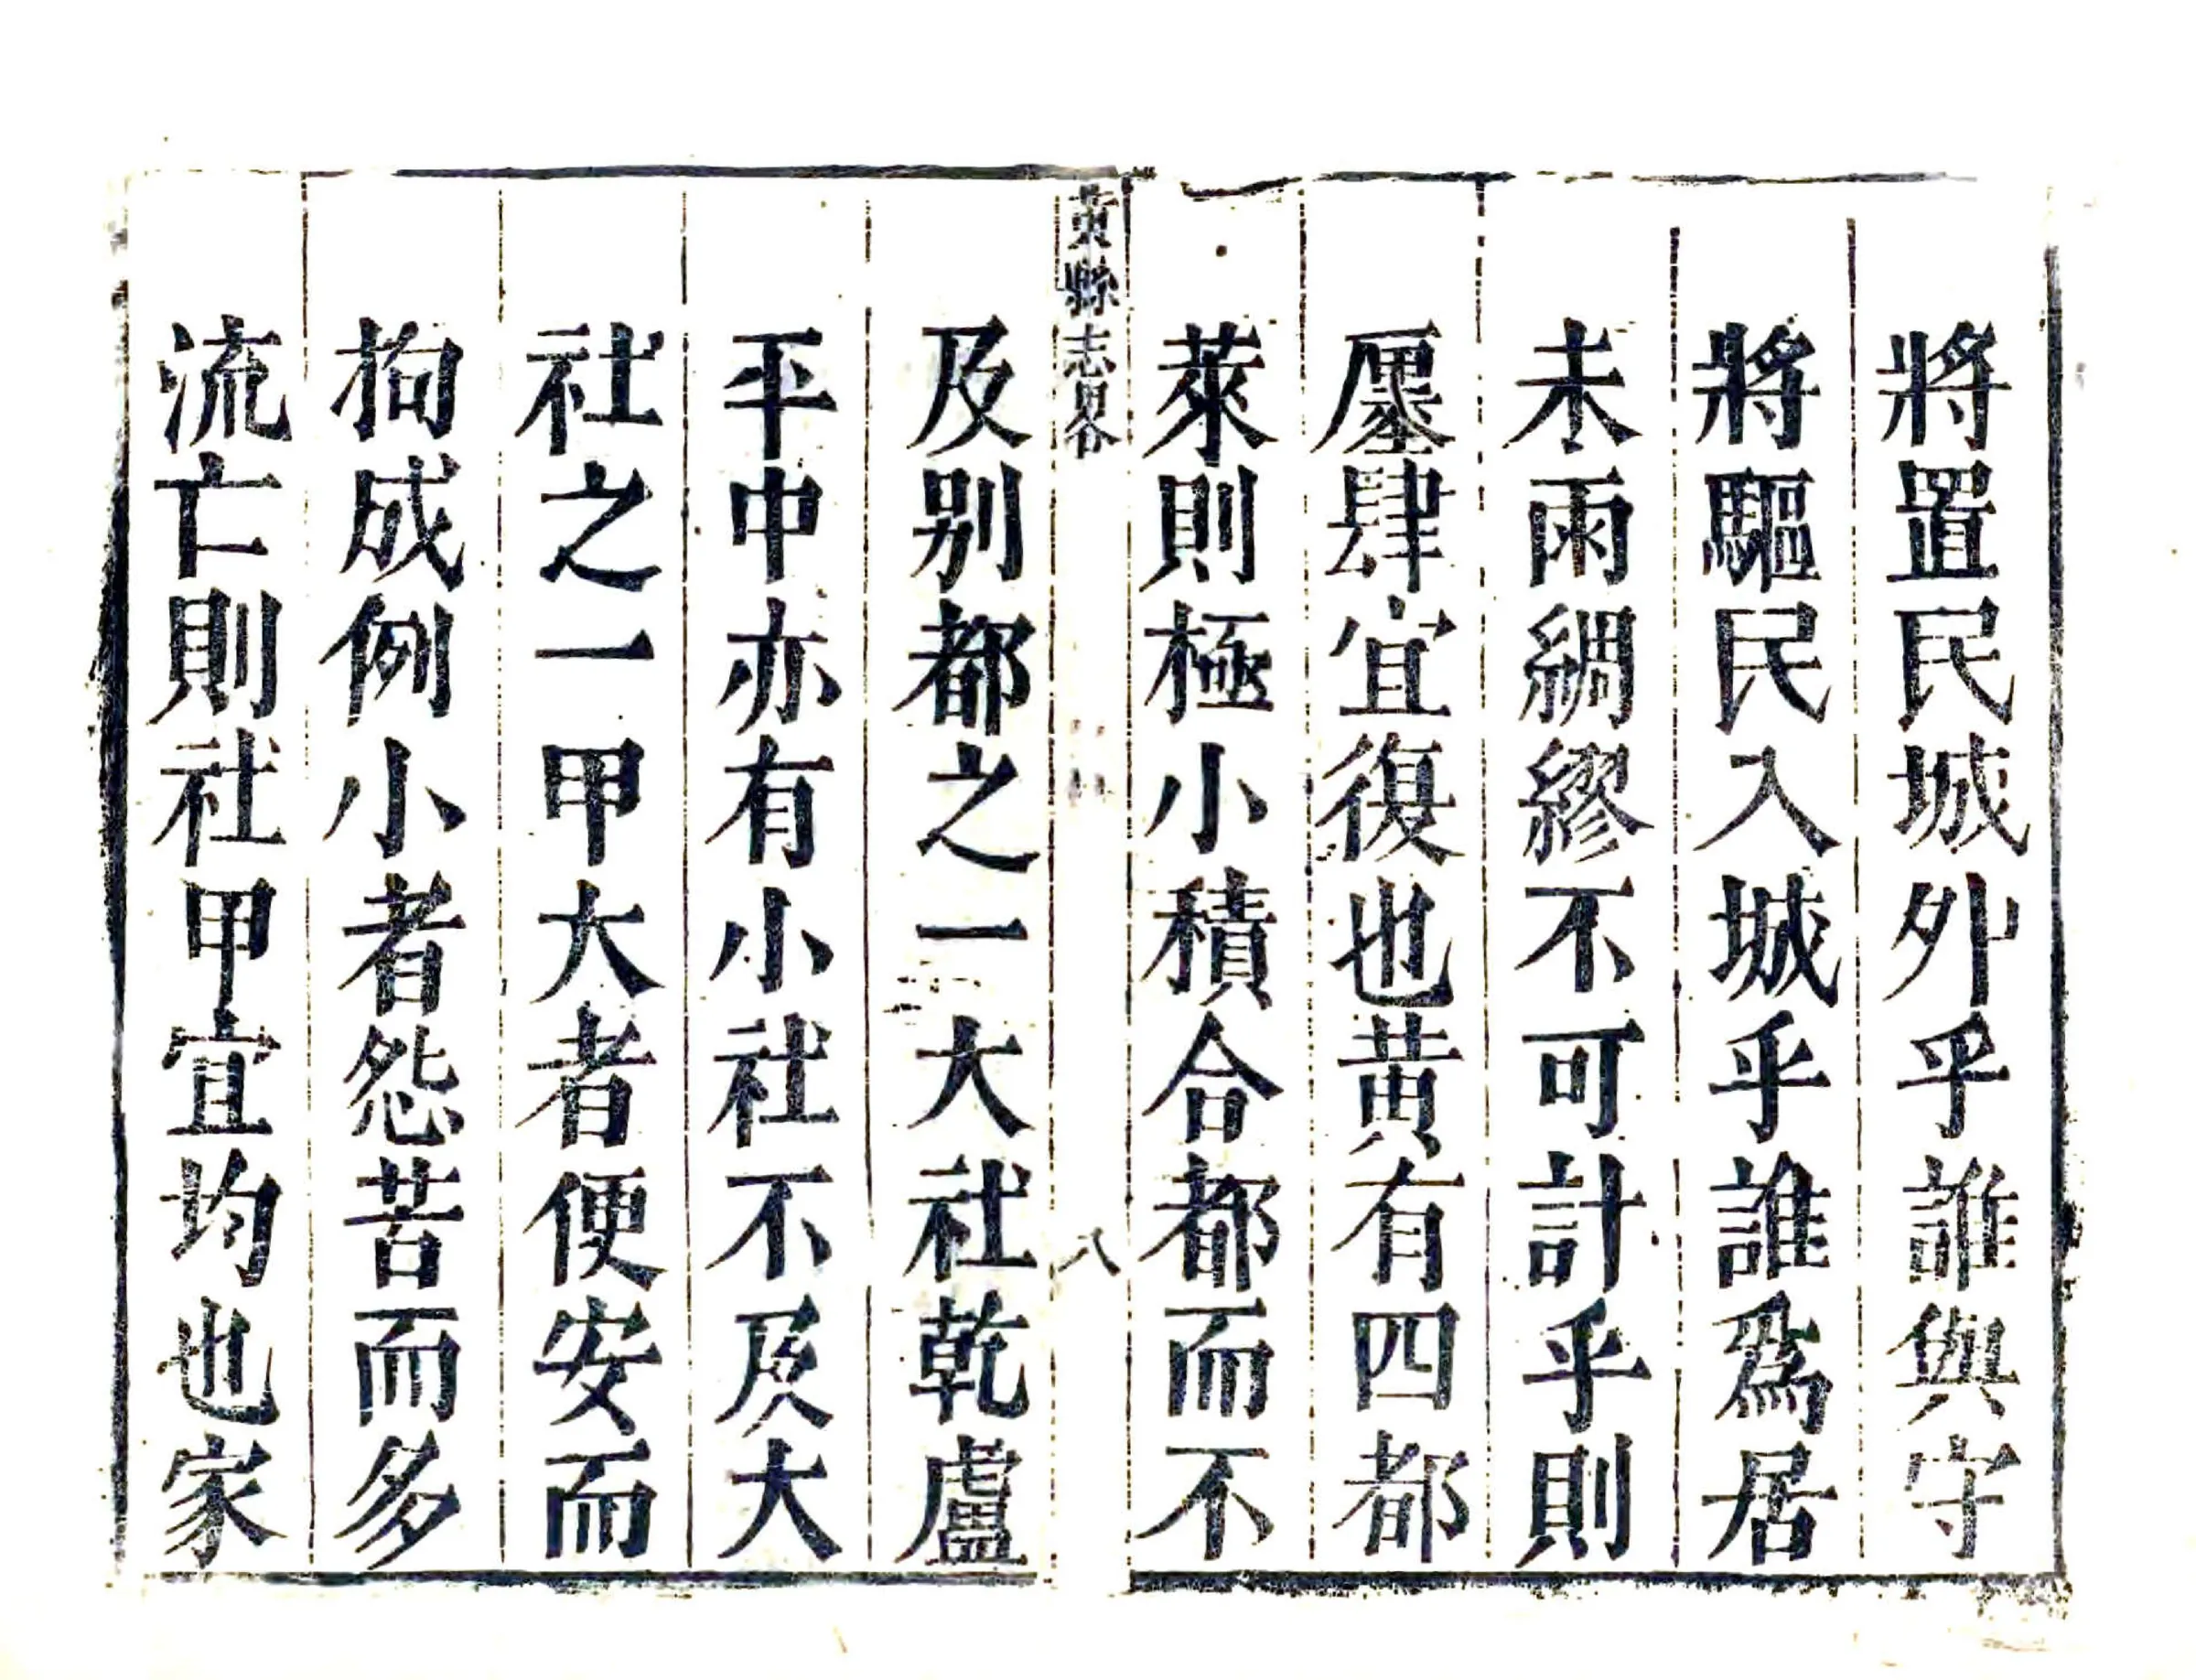 將置民城外乎誰與守
將驅民入城乎誰爲居
未雨綢繆不可計乎則
廛肆宜復也黃有四都
萊則極小積合都而不
黃縣志畧
八
及别都之一大社乾盧
平中亦有小社不及大
社之一甲大者便安而
拘成例小者怨苦而多
流亡則社甲宜均也家